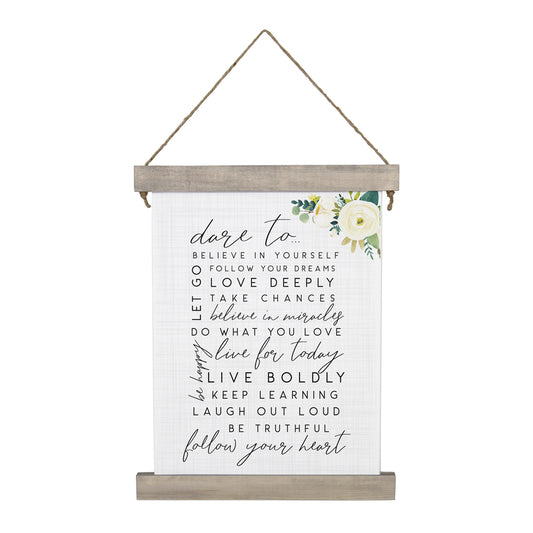 dare to...
BELIEVE IN YOURSELF
LET GO
FOLLOW YOUR DREAMS
LOVE DEEPLY
TAKE CHANCES
believe in miracles
DO WHAT YOU LOVE
be happy
live for today
LIVE BOLDLY
KEEP LEARNING
LAUGH OUT LOUD
BE TRUTHFUL
follow your heart